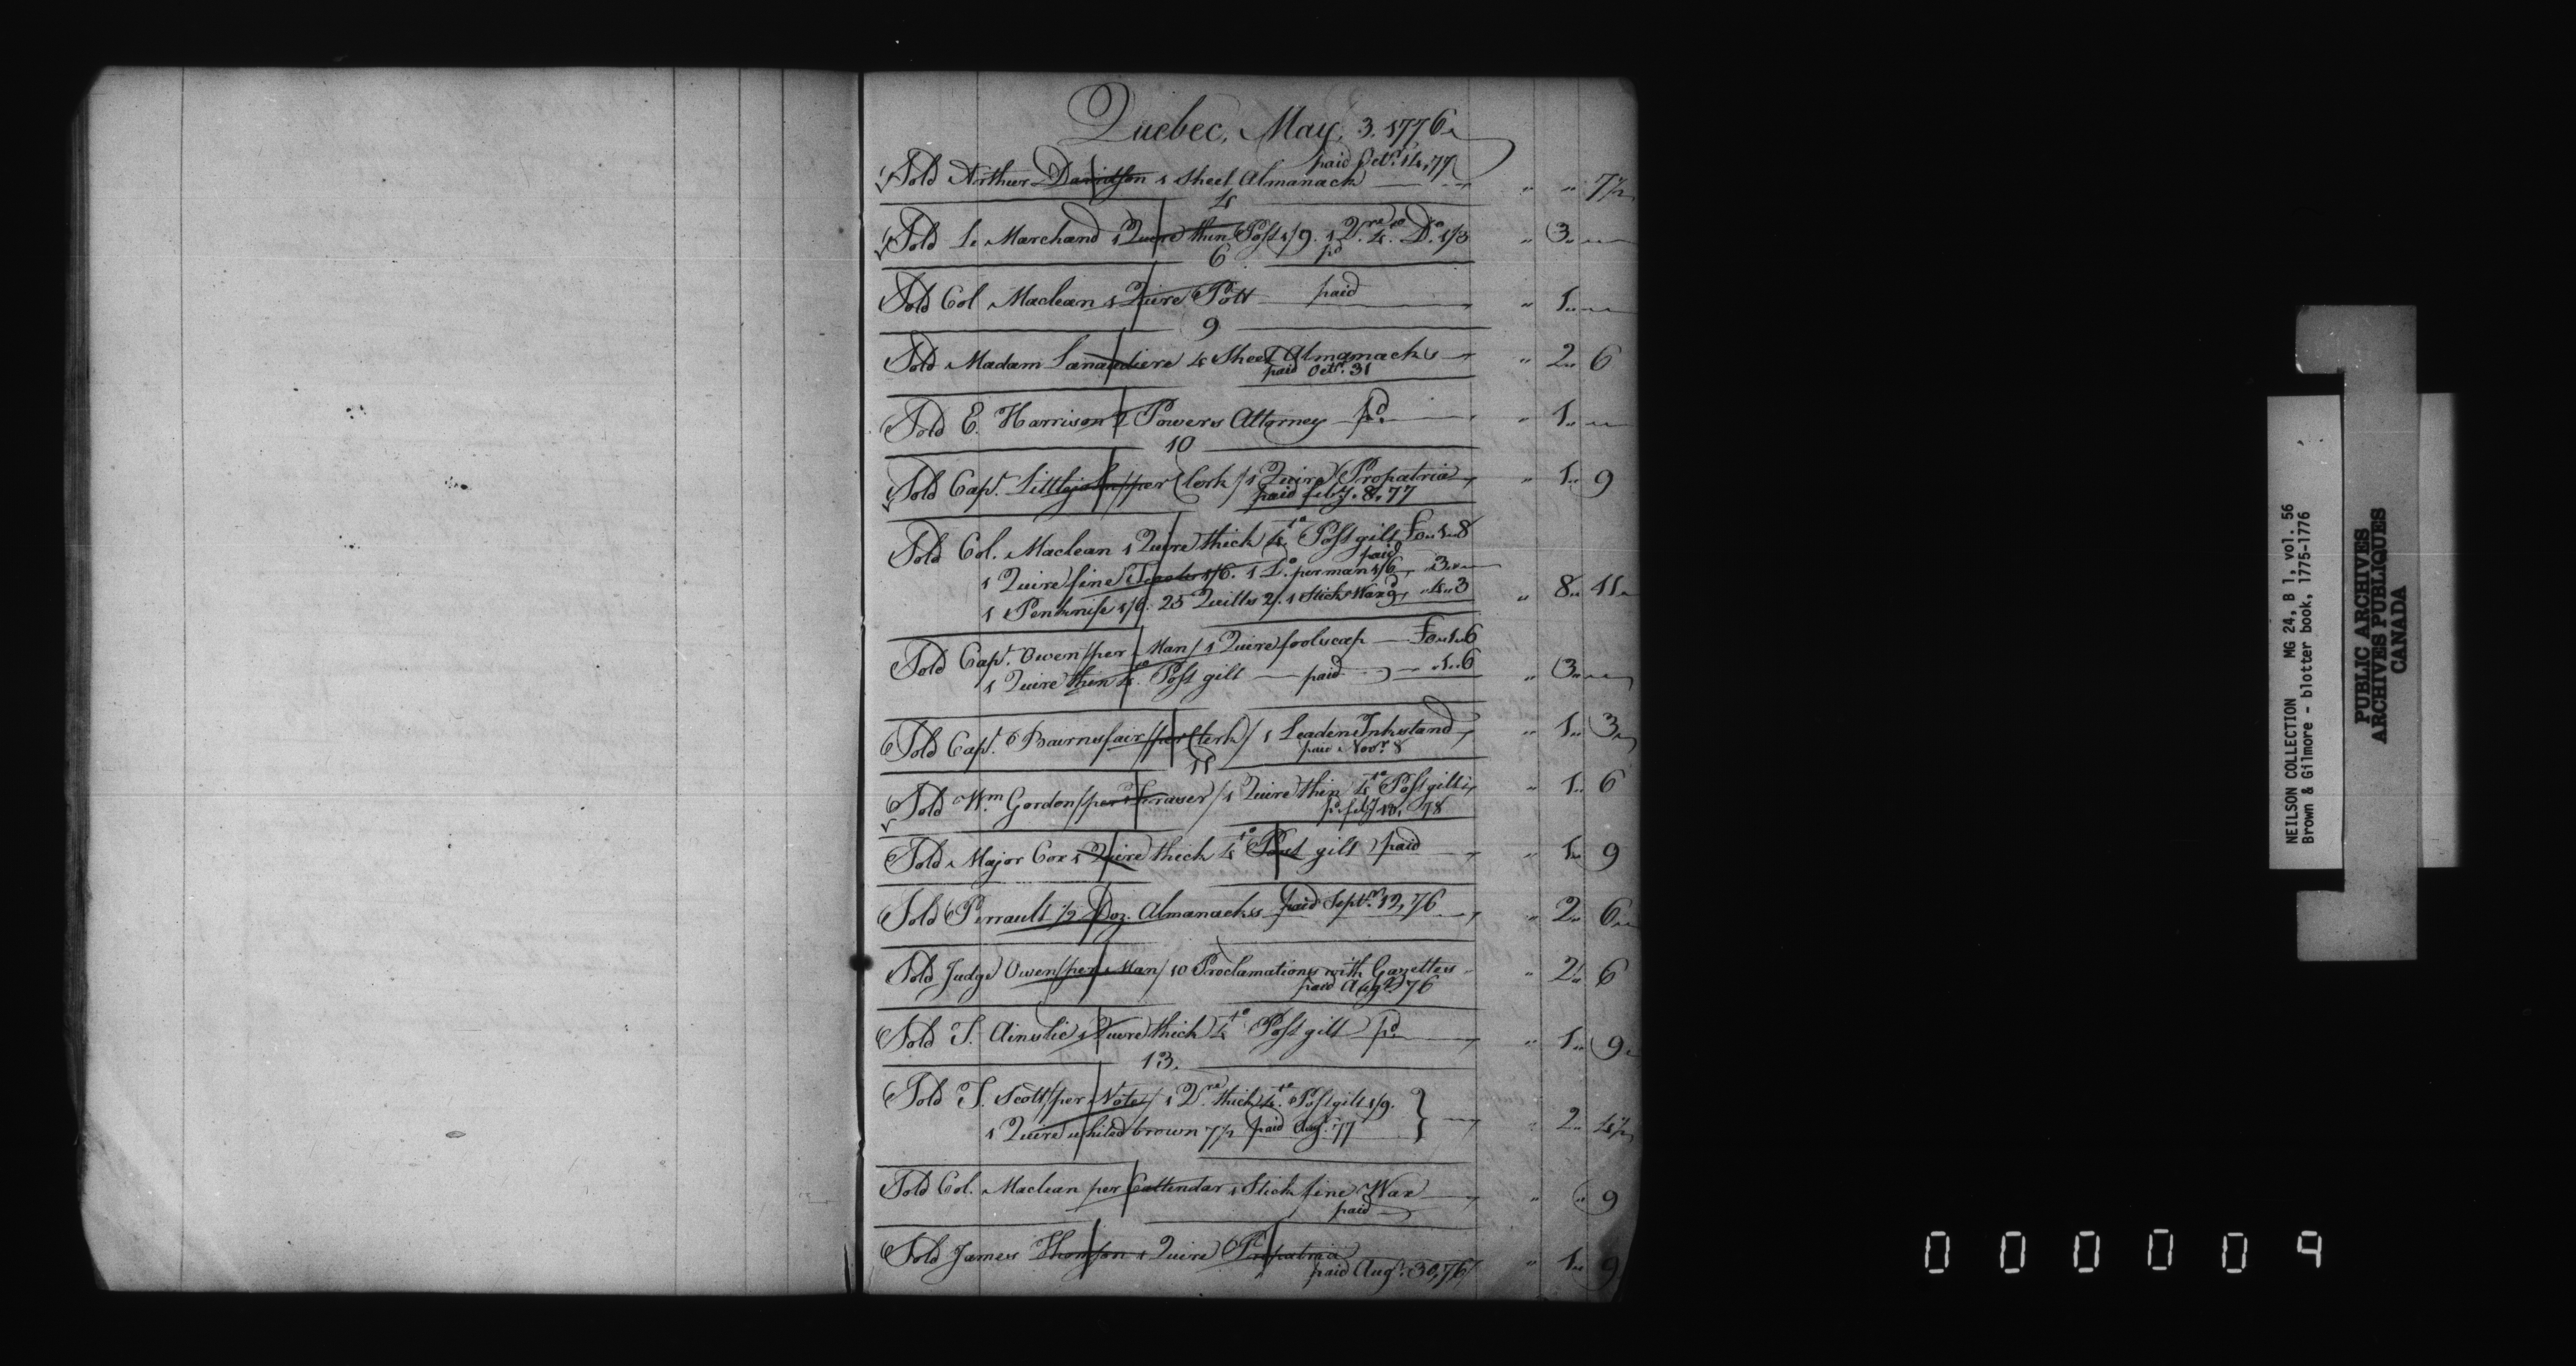 Quebec, May, 3. 1776
paid Octr. 14, 77
Sold Arthur Davidson 1 Sheet Almanack " " 7½
4
Sold Le Marchand 1 Quire thin Post 1/9. 1 Qre. 4to. Do. 1/3 " 3 "
pd
6
Sold Col Maclean 1 Quire Pott paid " 1 "
9
Sold Madam Lanaudiere 4 Sheet Almanacks " 2 " 6
paid Octr. 31
Sold E. Harrison 2 Powers Attorney pd. " 1 "
10
Sold Capt. Littlejohn /per Clerk/ 1 Quire Propatria " 1 " 9
paid feby. 8, 77
Sold Col. Maclean 1 Quire thick 4to Post gilt £0 " 1 " 8
paid
1 Quire fine 1/6. 1 Do. per man 1/6 " 3 "
1 Penknife 1/6. 25 Quills 2/. 1 Stick Wax 9 " 4 " 3 " 8 " 11
Sold Capt. Owen /per Man/ 1 Quire foolscap £0 " 1 " 6
1 Quire thin 4to Post gilt paid " 1 " 6 " 3 "
Sold Capt. Bairnsfair /per Clerk/ 1 Leaden Inkstand " 1 " 3
paid Novr. 8
11
Sold Wm Gordon /per Fraser/ 1 Quire thin 4to Post gilt " 1 " 6
pd. feby 18, 78
Sold Major Cox 1 Quire thick 4to Post gilt paid " 1 " 9
Sold Perrault ½ Doz. Almanacks paid Septr. 12, 76 " 2 " 6
Sold Judge Owen /per Man/ 10 Proclamations with Gazettes " 2 " 6
paid Augt. 76
Sold T. Ainslie 1 Quire thick 4to Post gilt pd " 1 " 9
13.
Sold T. Scott /per Note/ 1 Qre. thick 4to. Post gilt 1/9.
1 Quire whited brown 7½ paid Augt. 77 " 2 " 4½
Sold Col. Maclean per Callendar 1 Stick fine Wax " " 9
paid
Sold James Thomson 1 Quire Propatria " 1 " 9
paid Augt. 30, 76
NEILSON COLLECTION MG 24, B 1, vol. 56
Brown & Gilmore - blotter book, 1775-1776
PUBLIC ARCHIVES
ARCHIVES PUBLIQUES
CANADA
000009